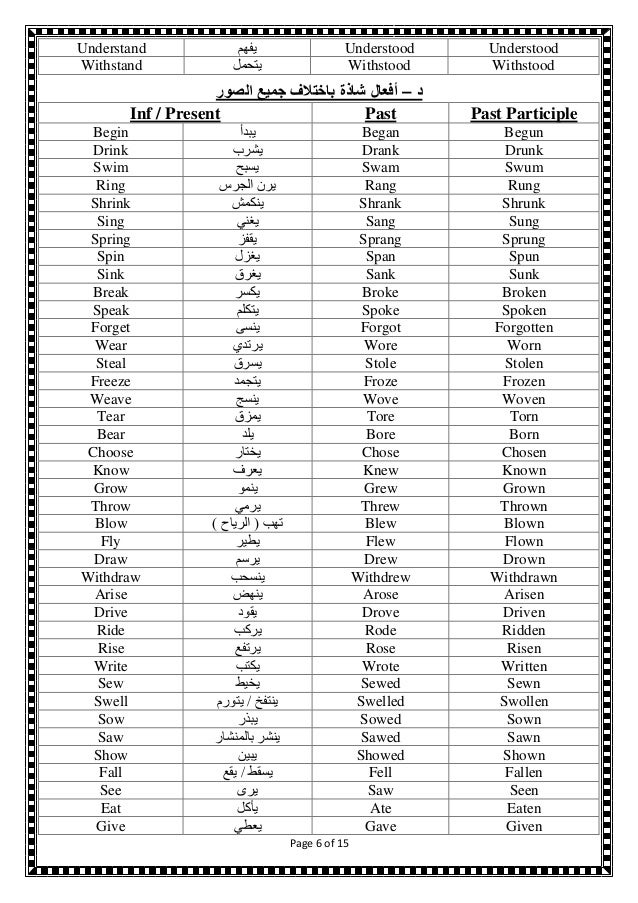 Understand يفهم Understood Understood
Withstand يتحمل Withstood Withstood
د – أفعال شاذة باختلاف جميع الصور
Inf / Present Past Past Participle
Begin يبدأ Began Begun
Drink يشرب Drank Drunk
Swim يسبح Swam Swum
Ring يرن الجرس Rang Rung
Shrink ينكمش Shrank Shrunk
Sing يغني Sang Sung
Spring يقفز Sprang Sprung
Spin يغزل Span Spun
Sink يغرق Sank Sunk
Break يكسر Broke Broken
Speak يتكلم Spoke Spoken
Forget ينسى Forgot Forgotten
Wear يرتدي Wore Worn
Steal يسرق Stole Stolen
Freeze يتجمد Froze Frozen
Weave ينسج Wove Woven
Tear يمزق Tore Torn
Bear يلد Bore Born
Choose يختار Chose Chosen
Know يعرف Knew Known
Grow ينمو Grew Grown
Throw يرمي Threw Thrown
Blow تهب ( الرياح ) Blew Blown
Fly يطير Flew Flown
Draw يرسم Drew Drown
Withdraw ينسحب Withdrew Withdrawn
Arise ينهض Arose Arisen
Drive يقود Drove Driven
Ride يركب Rode Ridden
Rise يرتفع Rose Risen
Write يكتب Wrote Written
Sew يخيط Sewed Sewn
Swell ينتفخ / يتورم Swelled Swollen
Sow يبذر Sowed Sown
Saw ينشر بالمنشار Sawed Sawn
Show يبين Showed Shown
Fall يسقط / يقع Fell Fallen
See يرى Saw Seen
Eat يأكل Ate Eaten
Give يعطي Gave Given
Page 6 of 15